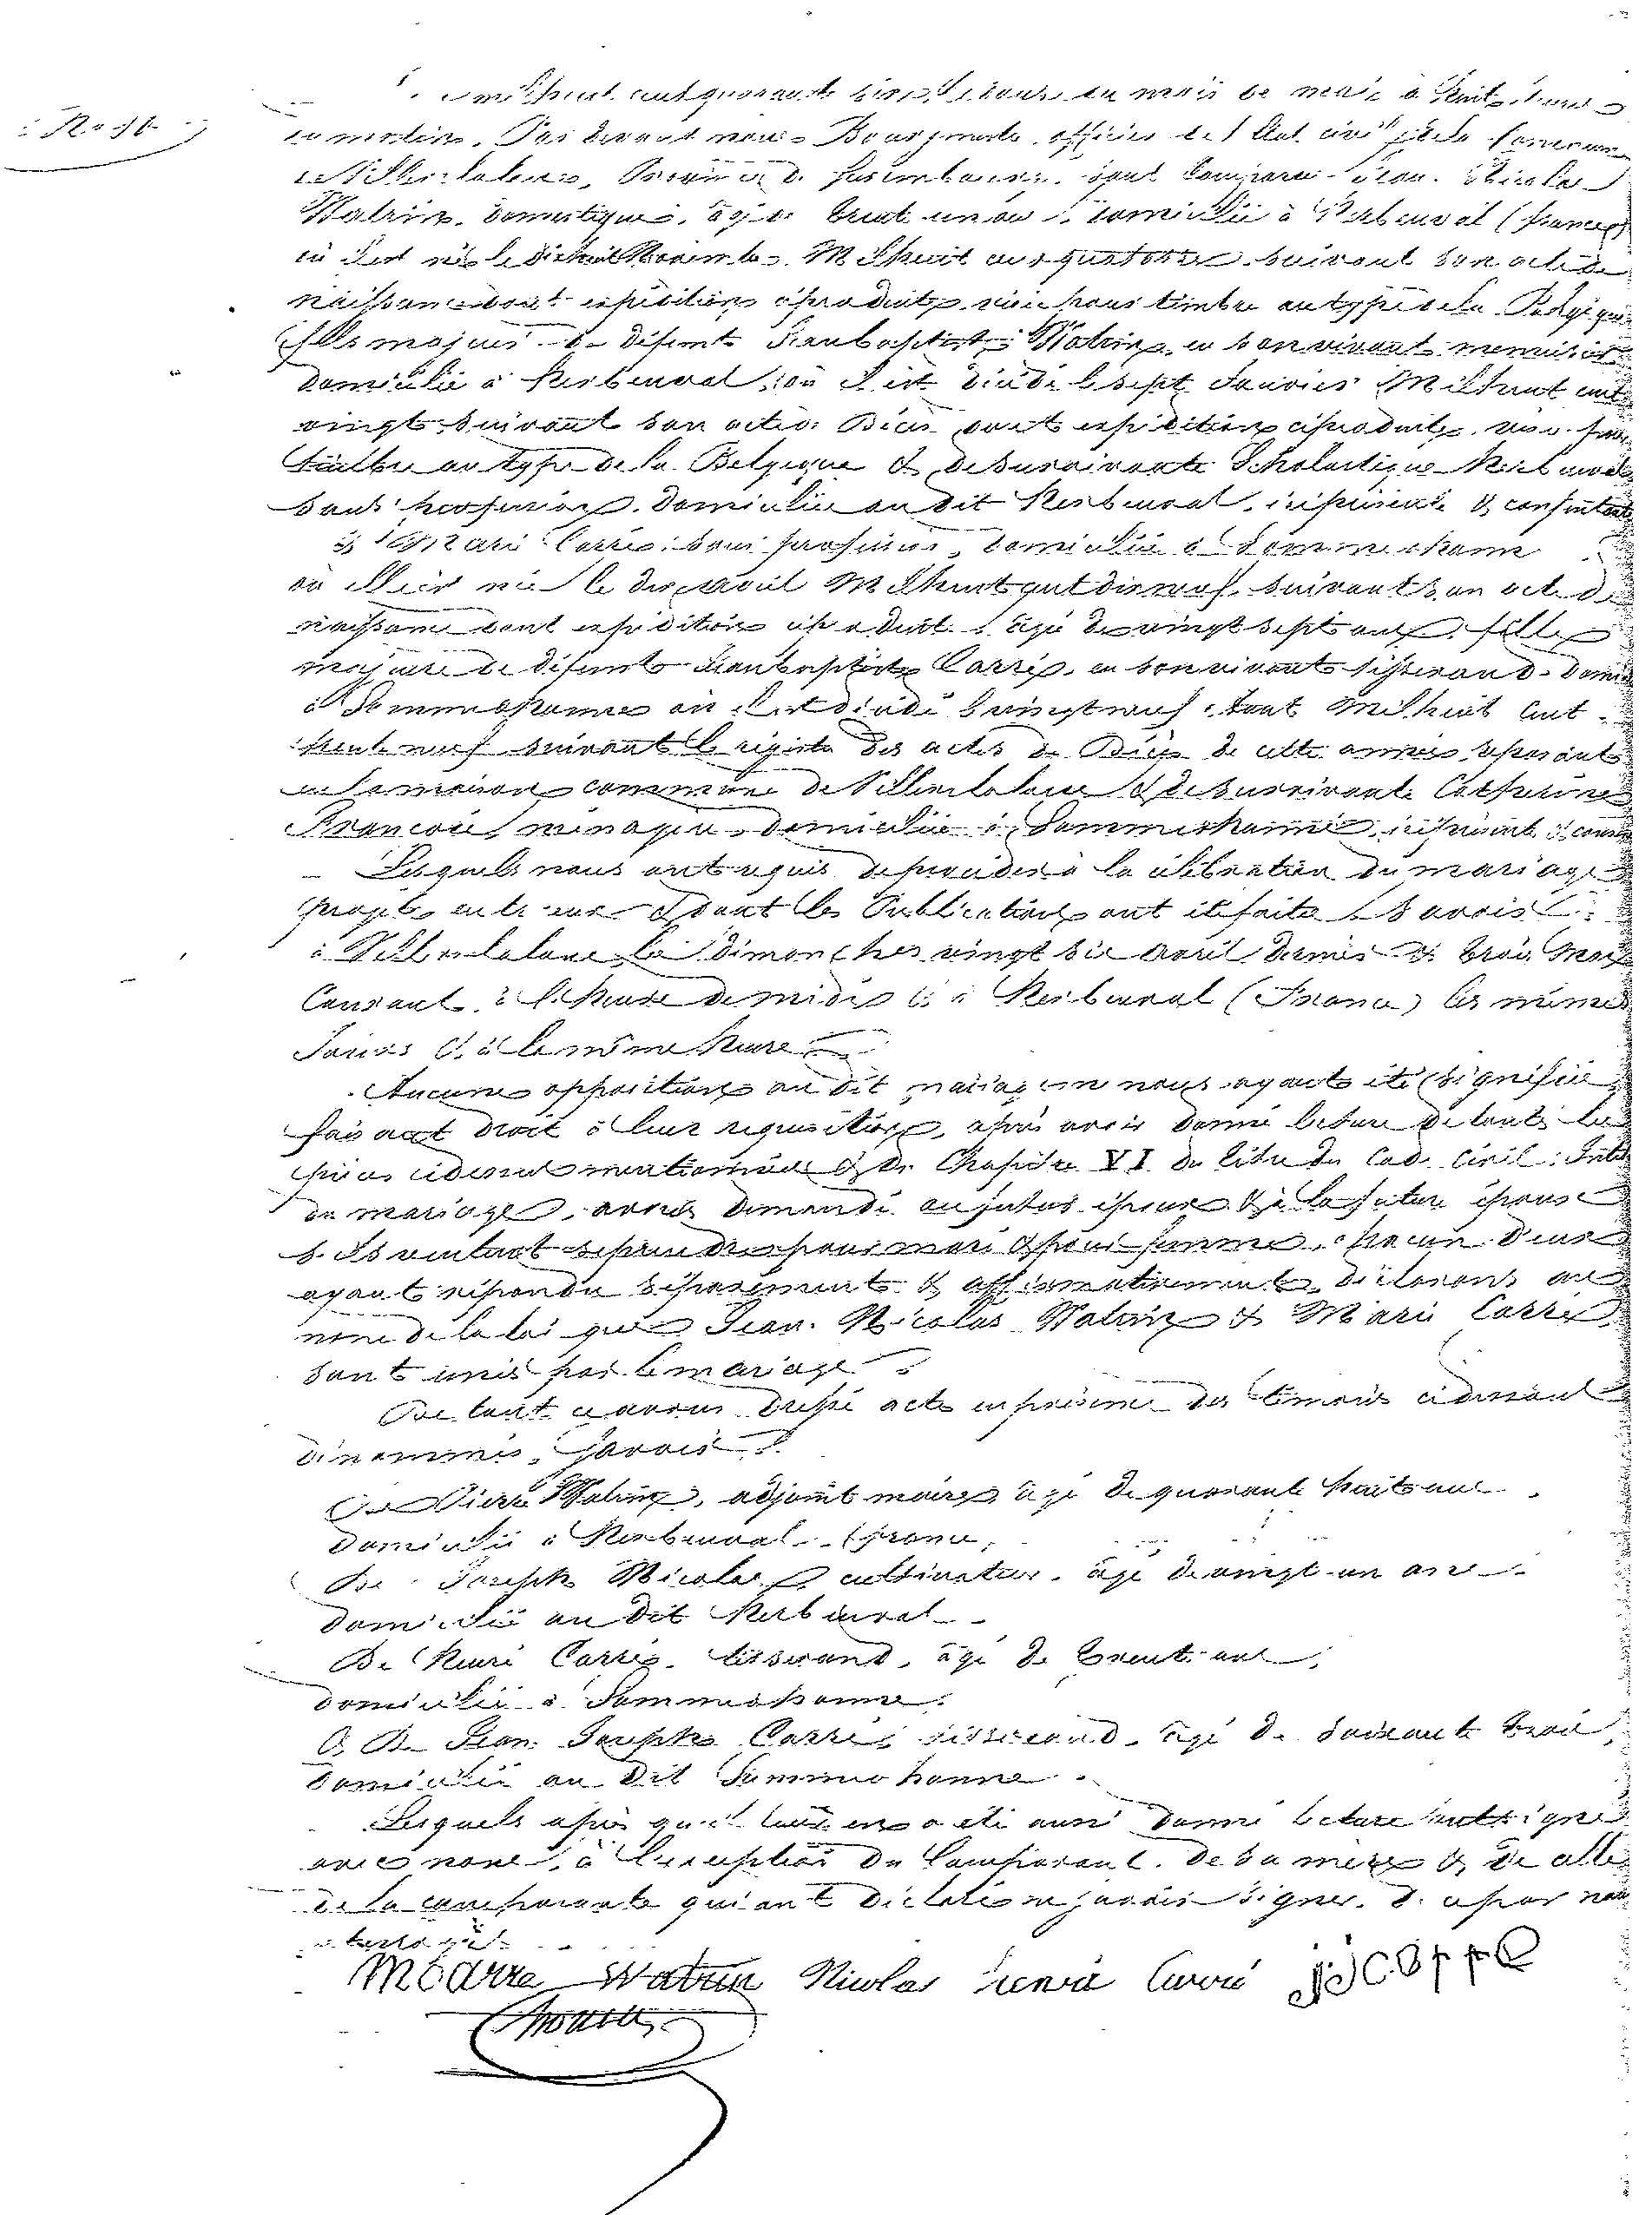 mil huit cent quarante six, le onze du mois de mai à huit heures
du matin, Par devant nous Bourgmestre, officier de l'Etat civil de la Commune
de Villers la loue, Province de Luxembourg, sont comparus Jean Nicolas
Watrin, domestique, âgé de trente un ans, domicilié à (France)
où il est né le dixhuit Novembre Mil huit cent quatorze, suivant son acte de
naissance dont expédition a produite, visée pour timbre au type de la Belgique
fils majeur de défunt Jean baptiste Watrin, en son vivant menuisier
domicilié à où il est décédé le sept Janvier Mil huit cent
vingt, suivant son acte de Décès dont expédition a produite, visée pour
timbre au type de la Belgique & de survivante Scholastique
sans profession, domiciliée au dit ici présente & consentante
& Marie Carré, sans profession, domiciliée à Sommethonne
où elle est née le dix avril Mil huit cent dix neuf, suivant son acte de
naissance dont expédition a produite, âgée de vingt sept ans, fille
majeure de défunt Jean baptiste Carré, en son vivant tisserand, domicilié
à Sommethonne où il est décédé le vingt neuf Mil huit Cent
trente neuf suivant le registre des actes de Décès de cette année, reposant
en la maison commune de Villers la loue & de survivante Catherine
François, ménagère, domiciliée à Sommethonne, ici présente &
Lesquels nous ont requis de procéder à la célébration du mariage
projeté entre eux & dont les Publications ont été faites savoir :
à Villers la loue les dimanches vingt six avril dernier & trois Mai
Courant, à l'heure de midi & à (France) les mêmes
Jours & à la même heure
Aucune opposition au dit mariage ne nous ayant été signifiée
faisant droit à leur requisition, après avoir donné lecture de toutes les
pièces cidessus mentionnées & du Chapitre VI du titre du Code Civil, Intitulé
du mariage, avons demandé au futur époux & à la future épouse
s'ils veulent se prendre pour mari & pour femme, chacun d'eux
ayant répondu séparément & affirmativement, déclarons au
nom de la loi que Jean Nicolas Watrin & Marie Carré
sont unis par le mariage
De tout ce avons dressé acte en présence des témoins ci dessous
dénommés, savoir :
De Pierre Watrin, adjoint maire, âgé de quarante huit ans
domicilié à (France,
De Joseph Nicolas, cultivateur, âgé de vingt-un ans
domicilié au dit
De Henri Carré, tisserand, âgé de trente ans,
domicilié à Sommethonne.
& De Jean Joseph Carré, tisserand, âgé de soixante trois,
domicilié au dit Sommethonne.
Lesquels après qu'il leur en a été aussi donné lecture ont signé
avec nous, à l'exception du Comparant, de sa mère & de celle
de la comparante qui ont déclaré ne savoir signer, de ce par nous
interpellés.
M Carre Watrin Nicolas Henri Carré JJ Carre